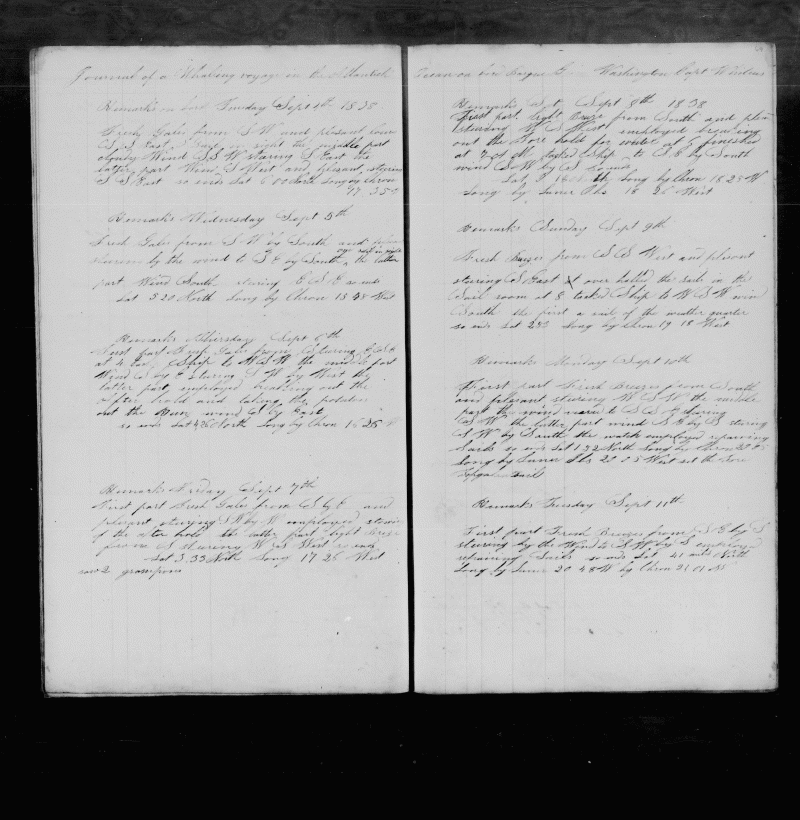 Journal of a Whaling voyage in the Atlantick
Remarks on bord Tuesday Sept 4th 1838
Fresh Gales from S W and plesant
S S East at night the middle part
cloudy Wind S S W staring S East the
latter part Wind S West and plesant, stearing
S S East so ends Lat 6 00 North Long by Chron
17 35
Remarks Wednesday Sept 5th
Fresh Gales from S W by South and
stearing by the wind to S E by South the latter
part Wind South stearing E S E so ends
Lat 5 20 North Long by Chron 15 48 West
Remarks Thursday Sept 6th
First part Fresh Gales from S stearing E S E
at 4 Ship to W S W the middle part
Wind S by E staring S W by West the
latter part employed breaking out the
After hold and taking the potatoes
out the Run wind S by East
so ends Lat 4 26 North Long by Chron 16 26 W
Remarks Friday Sept 7th
First part Fresh Gales from S by E and
plesant stearing S W by W employed stowing
of the after hold the latter part light Breeze
from S Stearing W S West so ends
Lat 3 33 North Long 17 26 West
saw 2 grampuses
Ocean on bord Barque Washington Capt
Remarks Sat Sept 8th 1838
First part, light Breeze from South and
stearing W S West employed breaking
out the Fore hold for water at 5 finished
at 7 tacked Ship to S E by South
wind S W by S
Long by Chron 18 25 W
Long by Luner Obs 18 26 West
Remarks Sunday Sept 9th
Fresh Breezes from S S West and plesant
stearing S East over halled the sails in the
Sail room at 8 tacked Ship to W S W wind
South the first a sail of the weather quarter
so ends Lat 2 53 Long by Chron 19 18 West
Remarks Monday Sept 10th
First part Fresh Breezes from South
and plesant stearing W S W the middle
part the wind nearer to S S E stearing
S W the latter part wind S E by S staring
S W by South the watch employed repairing
Sails so ends Lat 1 32 North Long by Chron 20 05
Long by Luner Obs 20 05 West set the Fore
Topga Sail
Remarks Tuesday Sept 11th
First part Fresh Breezes from S E by S
stearing by the Wind to S W by S employed
repairing Sails so ends Lat 41 mils North
Long by Luner 20 48 W by Chron 21 01 W